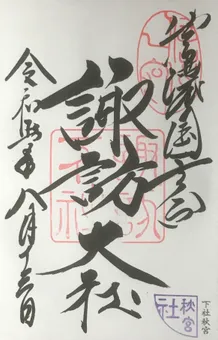 信濃國一之宮
諏訪大社
令和五年八月十三日
下社秋宮
秋宮
社